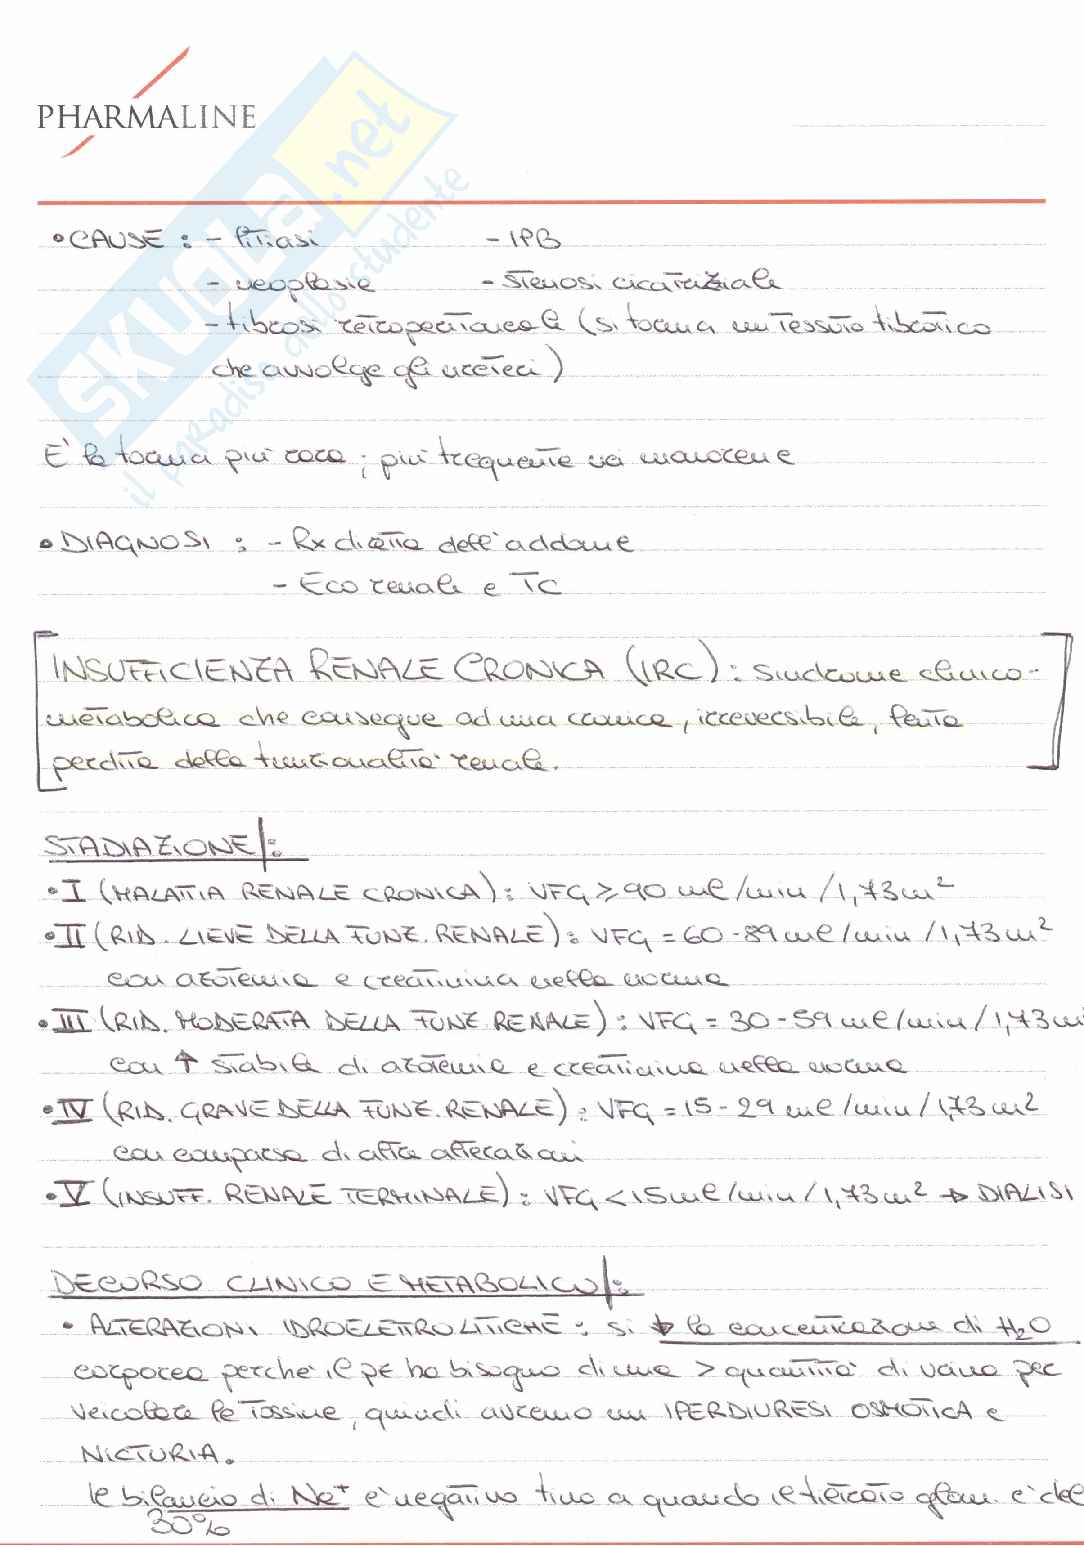 PHARMALINE
SKUOLA.net
il paradiso dello studente
• CAUSE : - litiasi - IPB
- neoplasie - stenosi cicatriziale
- fibrosi retroperitoneale (si forma un tessuto fibrotico
che avvolge gli ureteri)
E' la forma più rara ; più frequente nei
• DIAGNOSI : - Rx diretta dell'addome
- Eco renale e TC
INSUFFICIENZA RENALE CRONICA (IRC) : sindrome clinico-
metabolica che consegue ad una cronica, irreversibile, lenta
perdita della funzionalità renale.
STADIAZIONE :
• I (MALATTIA RENALE CRONICA) : VFG ≥ 90 ml/min/1,73 m²
• II (RID. LIEVE DELLA FUNZ. RENALE) : VFG = 60-89 ml/min/1,73 m²
con azotemia e creatinina nella norma
• III (RID. MODERATA DELLA FUNZ. RENALE) : VFG = 30-59 ml/min/1,73 m²
con ↑ stabile di azotemia e creatinina nella norma
• IV (RID. GRAVE DELLA FUNZ. RENALE) : VFG = 15-29 ml/min/1,73 m²
con comparsa di altre alterazioni
• V (INSUFF. RENALE TERMINALE) : VFG < 15 ml/min/1,73 m² → DIALISI
DECORSO CLINICO E METABOLICO :
• ALTERAZIONI IDROELETTROLITICHE : si ↓ la concentrazione di H2O
corporea perchè il pz ha bisogno di una > quantità di urina per
veicolare le tossine, quindi avremo un IPERDIURESI OSMOTICA e
NICTURIA.
Il bilancio di Na+ è negativo fino a quando il filtrato glom. è del
30%